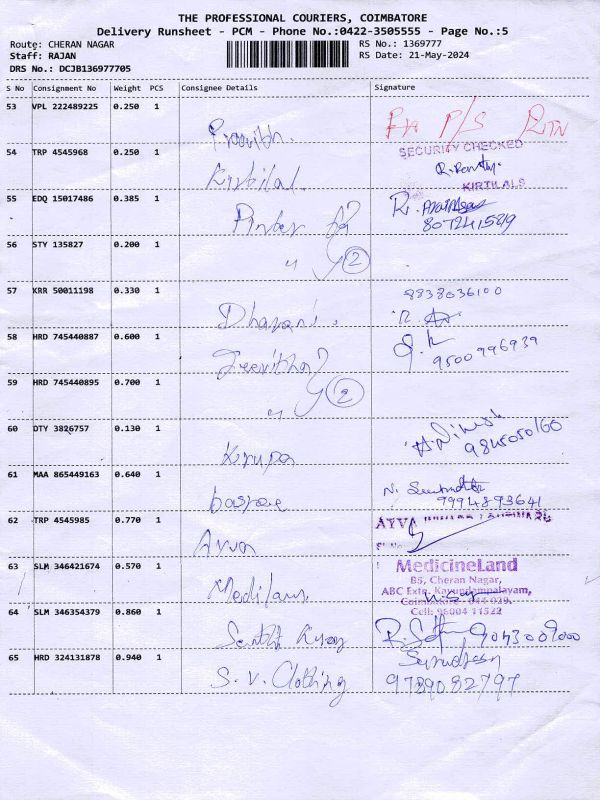 THE PROFESSIONAL COURIERS, COIMBATORE
Delivery Runsheet - PCM - Phone No.:0422-3505555 - Page No.:5
Route: CHERAN NAGAR
RS No.: 1369777
Staff: RAJAN
RS Date: 21-May-2024
DRS No.: DCJB136977705
S No Consignment No Weight PCS Consignee Details Signature
53 VPL 222489225 0.250 1
P/S RTN
54 TRP 4545968 0.250 1
SECURITY CHECKED
KIRTILALS
55 EDQ 15017486 0.385 1
8072415819
56 STY 135827 0.200 1
" 2
57 KRR 50011198 0.330 1
8838036100
Dharani.
58 HRD 745440887 0.600 1
9500996939
Jeevitha
59 HRD 745440895 0.700 1
" 2
60 DTY 3826757 0.130 1
9845050160
Krupa
61 MAA 865449163 0.640 1
N.
9994893641
62 TRP 4545985 0.770 1
AYVA
63 SLM 346421674 0.570 1
MedicineLand
B5, Cheran Nagar,
ABC Extn. Kavundampalayam,
Coimbatore - 641 030.
Cell: 96004 11522
64 SLM 346354379 0.860 1
9043009000
65 HRD 324131878 0.940 1
S.V. Clothing
9789082797